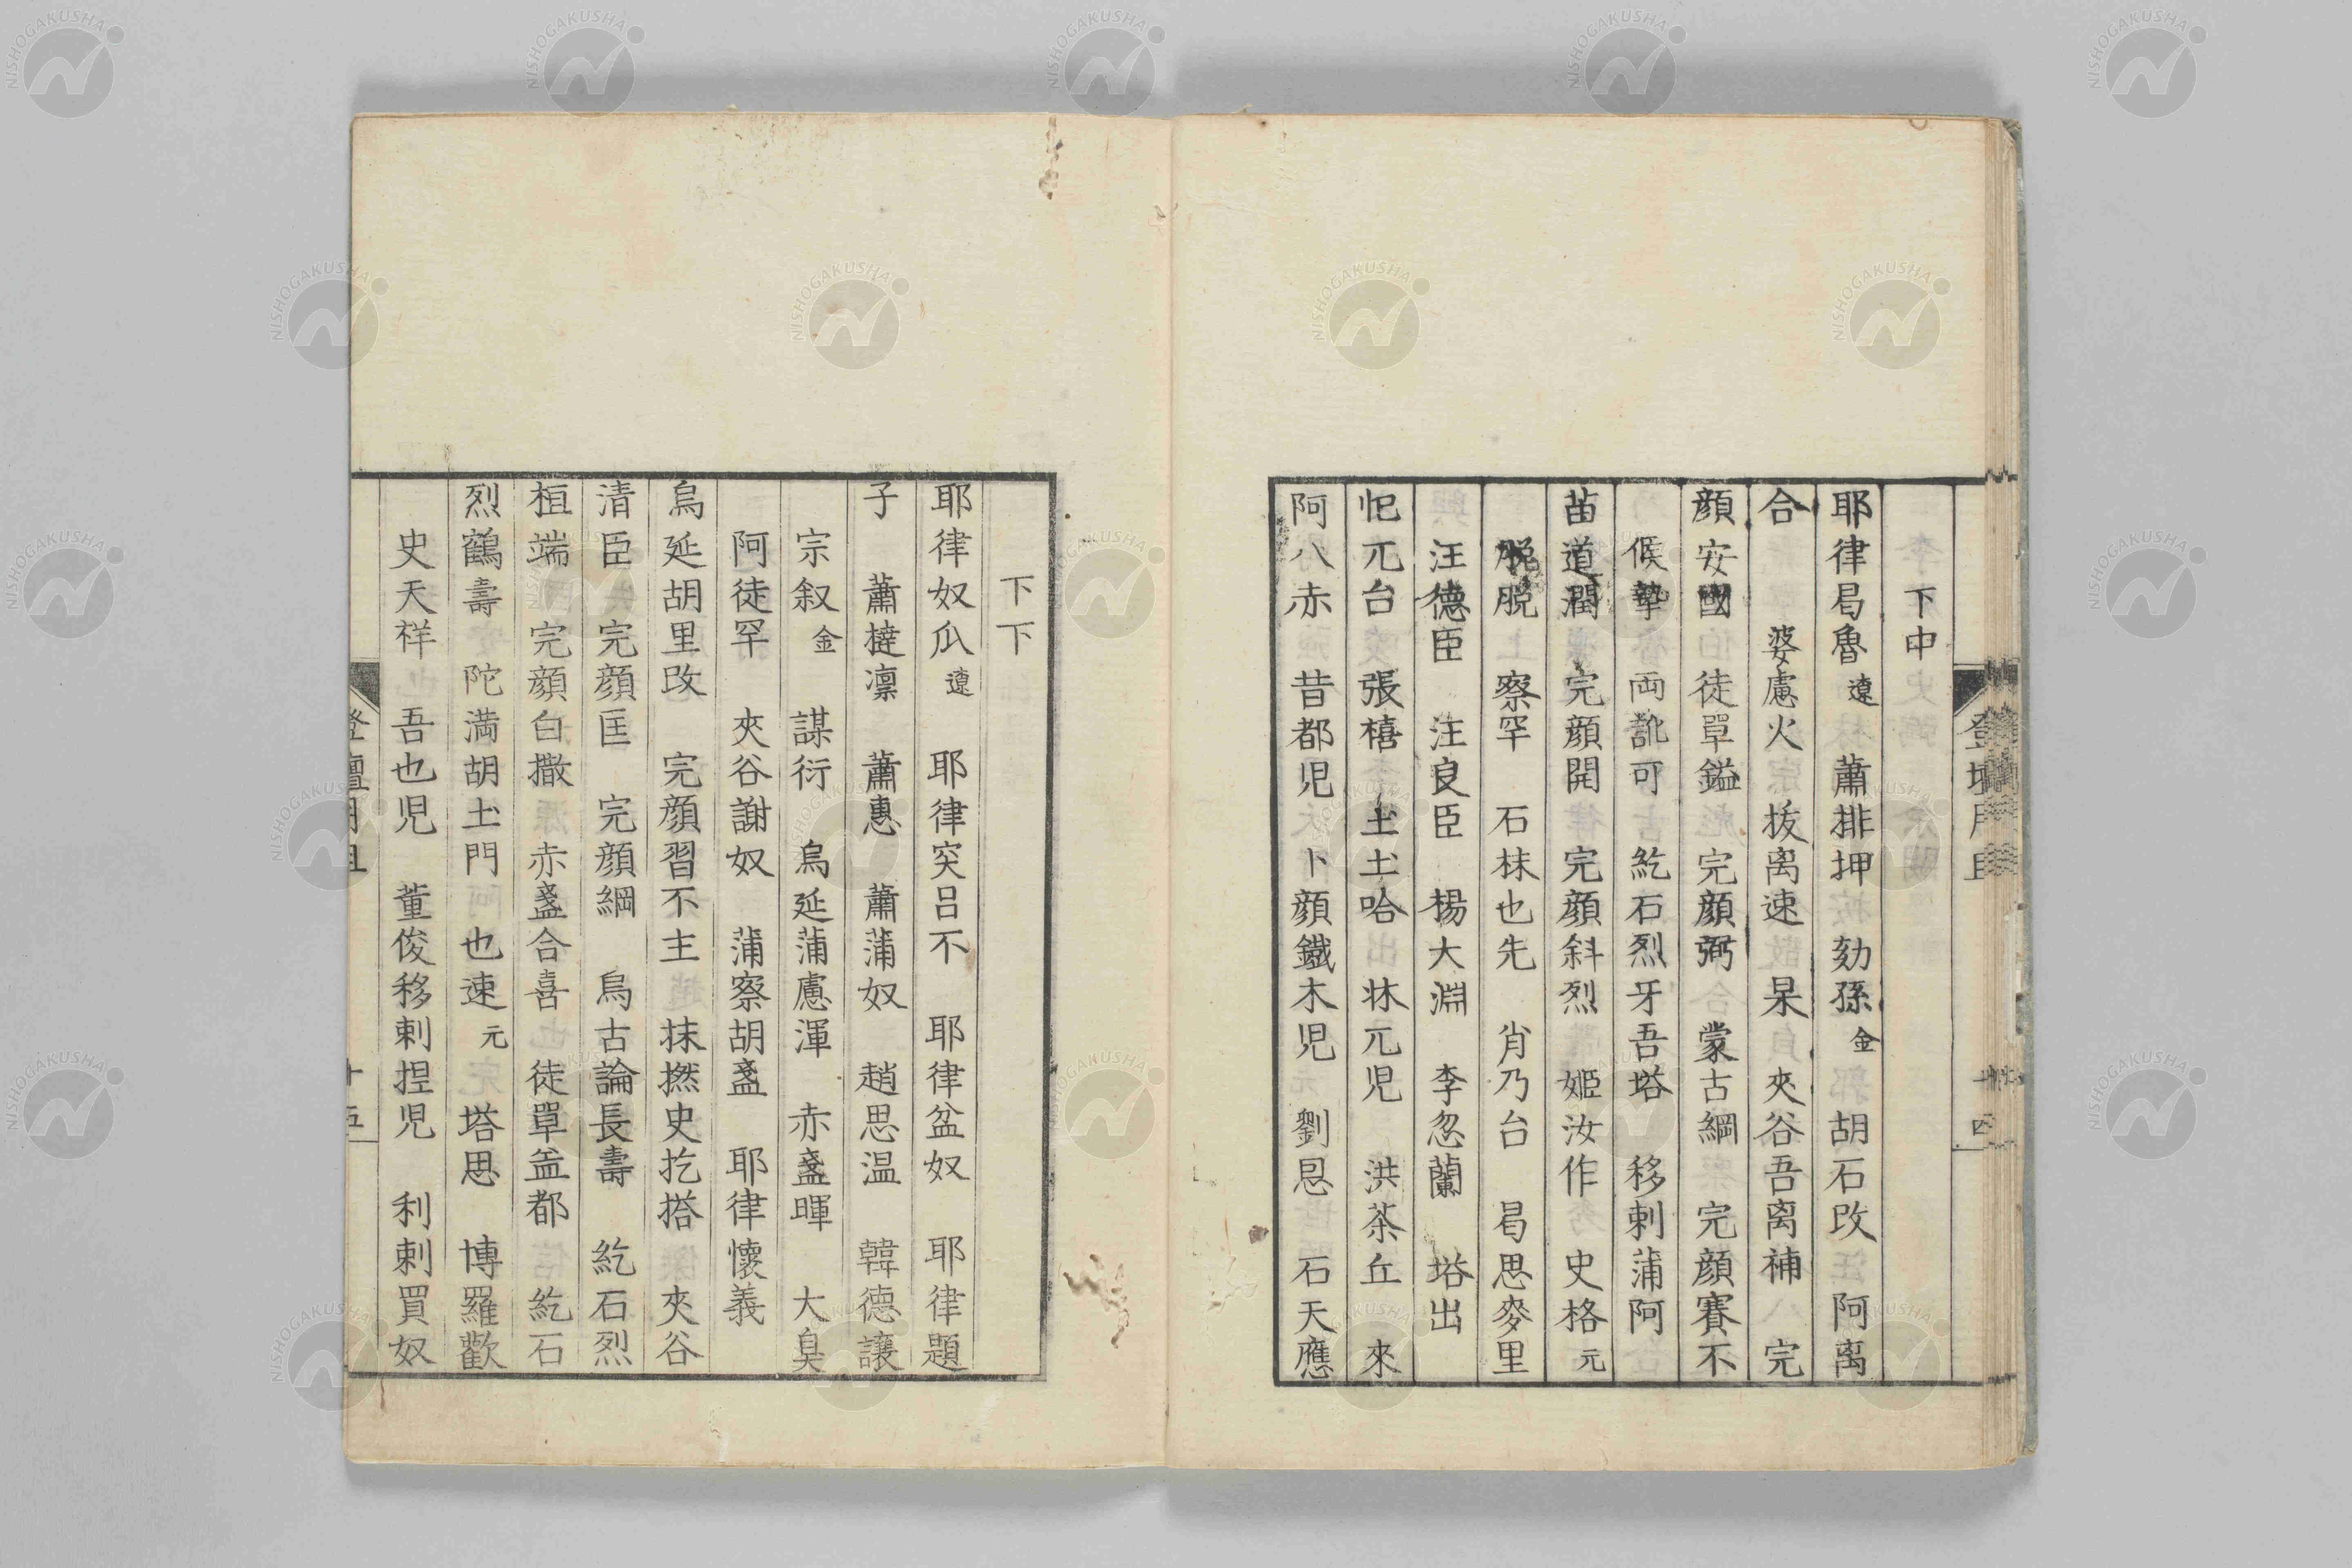 下中
耶律曷魯 遼 蕭排押 劾孫 金 胡石改 阿离
合 婆慮火 拔离速 杲 夾谷吾离補 完
顔安國 徒單鎰 完顔弼 蒙古綱 完顔賽不
侯摯 両訛可 紇石烈牙吾塔 移剌蒲阿
苗道潤 完顔開 完顔斜烈 姬汝作 史格 元
脱脱 察罕 石抹也先 肖乃台 曷思麥里
汪德臣 汪良臣 楊大淵 李忽蘭 塔出
怉兀台 張禧 土土哈 牀兀児 洪茶丘 來
阿八赤 昔都児 卜顔鐵木児 劉恩 石天應
下下
耶律奴瓜 遼 耶律突呂不 耶律盆奴 耶律題
子 蕭撻凛 蕭惠 蕭蒲奴 趙思温 韓德讓
宗叙 金 謀衍 烏延蒲慮渾 赤盞暉 大㚖
阿徒罕 夾谷謝奴 蒲察胡盞 耶律懷義
烏延胡里改 完顔習不主 抹撚史扢搭 夾谷
清臣 完顔匡 完顔綱 烏古論長壽 紇石烈
桓端 完顔白撒 赤盞合喜 徒單益都 紇石
烈鶴壽 陀満胡土門 也速 元 塔思 博羅歡
史天祥 吾也児 董俊 移剌捏児 利剌買奴
登壇用
十五
NISHOGAKUSHA